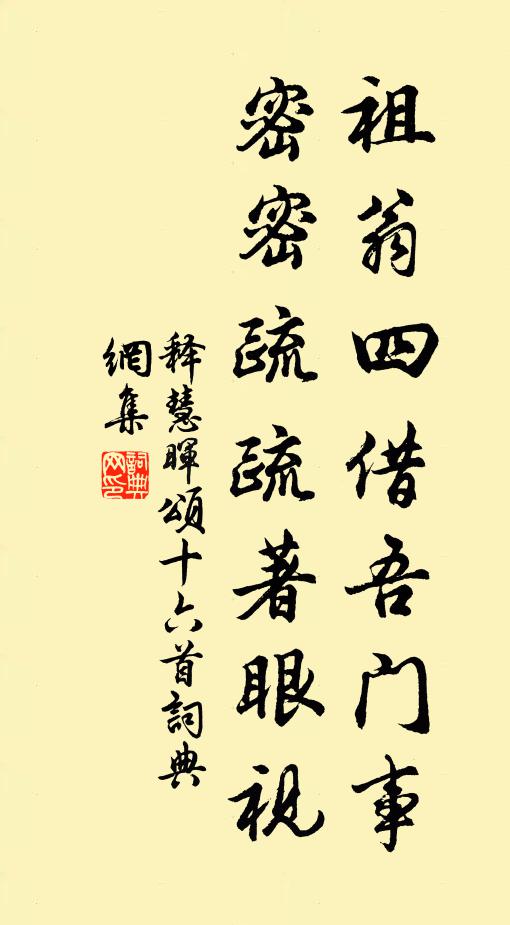 祖翁四借吾门事
密密疏疏著眼視
释慧暉頌十六首詞典
網集
詞典
网印